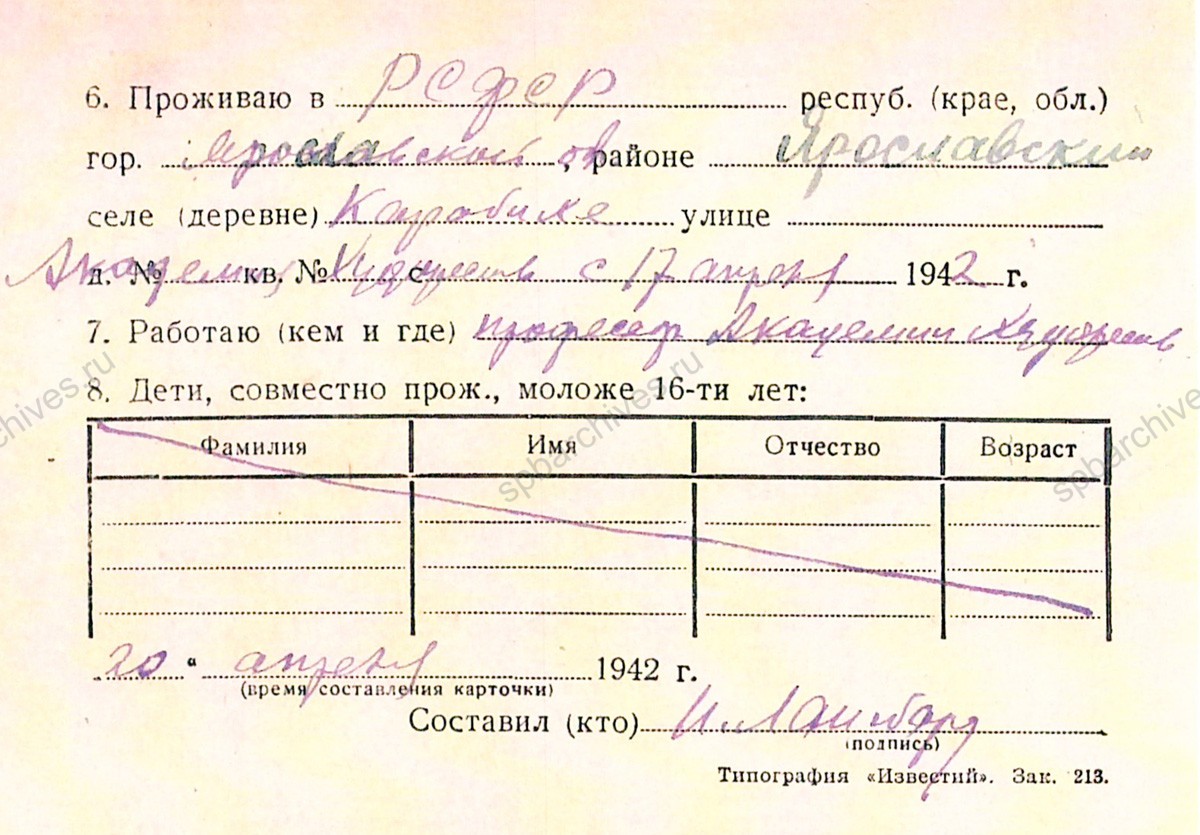 6. Проживаю в РСФСР респуб. (крае, обл.)
гор. Ярославской об районе Ярославский
селе (деревне) Карабихе улице
д. № кв. № с Академия Художеств с 17 апреля 1942 г.
7. Работаю (кем и где) профессор Академии Художеств
8. Дети, совместно прож., моложе 16-ти лет:
Фамилия Имя Отчество Возраст
20 " апреля 1942 г.
(время составления карточки)
Составил (кто) И. Лангбард
(подпись)
Типография «Известий». Зак. 213.
spbarchives.ru
spbarchives.ru
spbarchives